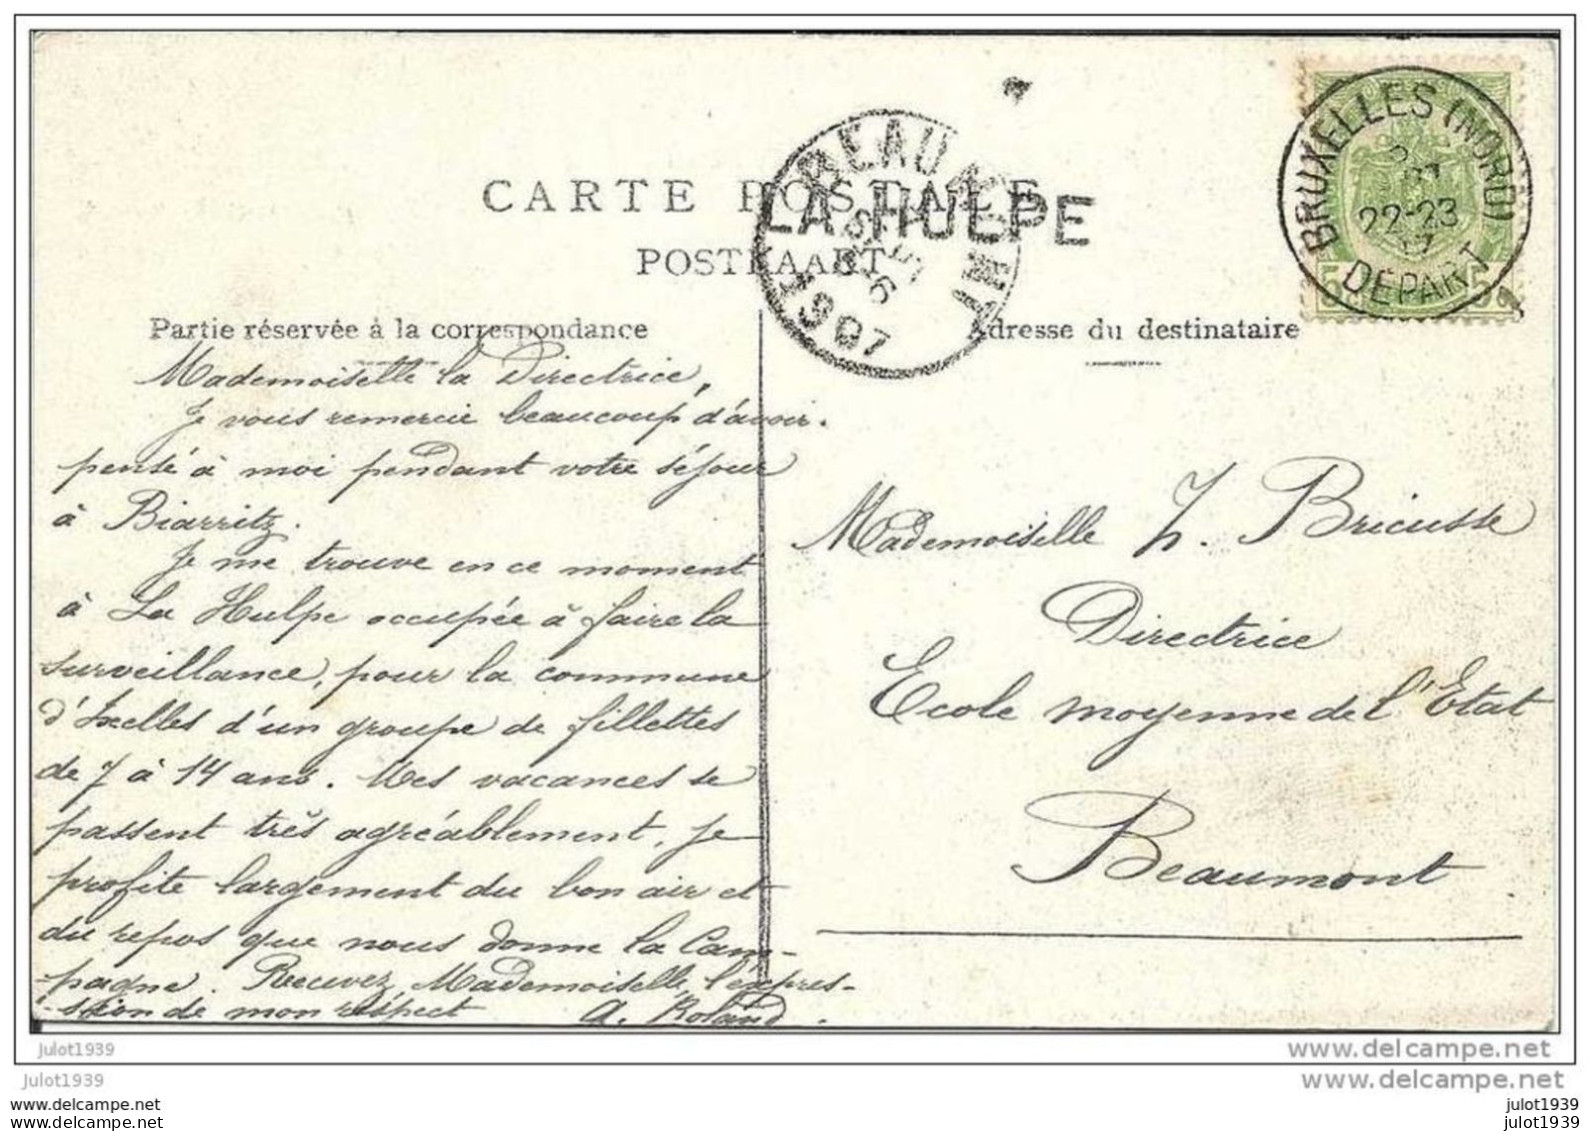 CARTE POSTALE
POSTKAART
LA HULPE
BEAUMONT
1907
BRUXELLES (NORD)
22-23
DEPART
5 5
Partie réservée à la correspondance
Mademoiselle la Directrice,
Je vous remercie beaucoup d'avoir
pensé à moi pendant votre séjour
à Biarritz.
Je me trouve en ce moment
à La Hulpe occupée à faire la
surveillance, pour la commune
d'Ixelles d'un groupe de fillettes
de 7 à 14 ans. Mes vacances se
passent très agréablement, je
profite largement du bon air et
du repos que nous donne la Cam-
pagne. Recevez, Mademoiselle, l'expres-
-sion de mon respect A. Roland.
Adresse du destinataire
Mademoiselle Z. Bricusse
Directrice
Ecole moyenne de l'Etat
Beaumont
julot1939
www.delcampe.net
julot1939
www.delcampe.net
julot1939
julot1939
julot1939
julot1939